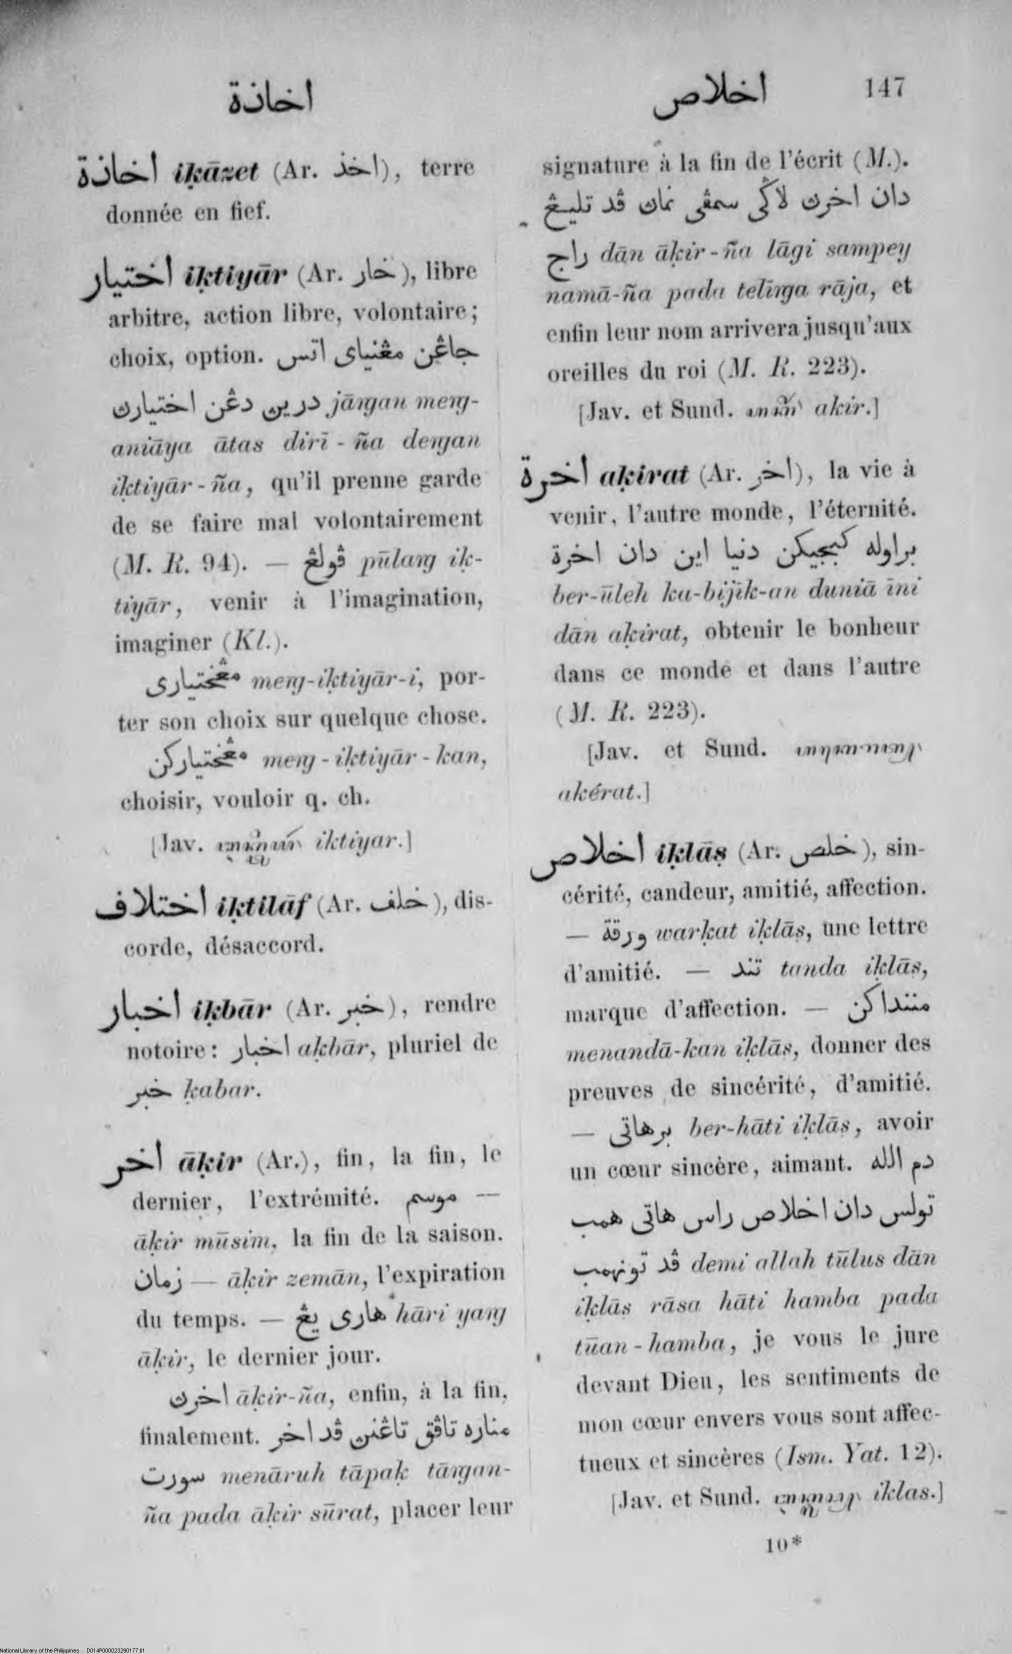 اخاذة
اخلاص
147
اخاذة iḳāzet (Ar. اخذ), terre
donnée en fief.
اختيار iḳtiyār (Ar. خار), libre
arbitre, action libre, volontaire;
choix, option. جاڠن مڠنياى اتس
درين دڠن اختيارڽ jāṅgan meṅg-
aniāya ātas dirī-ña deṅgan
iḳtiyār-ña, qu'il prenne garde
de se faire mal volontairement
(M. R. 94). — ڤولڠ pūlaṅg iḳ-
tiyār, venir à l'imagination,
imaginer (Kl.).
مڠختيارى meṅg-iḳtiyār-i, por-
ter son choix sur quelque chose.
مڠختياركن meṅg-iḳtiyār-kan,
choisir, vouloir q. ch.
[Jav. iktiyar.]
اختلاف iḳtilāf (Ar. خلف), dis-
corde, désaccord.
اخبار iḳbār (Ar. خبر), rendre
notoire: اخبار aḳbār, pluriel de
خبر ḳabar.
اخر āḳir (Ar.), fin, la fin, le
dernier, l'extrémité. موسم —
āḳir mūsim, la fin de la saison.
زمان — āḳir zemān, l'expiration
du temps. — هارى يڠ hāri yaṅg
āḳir, le dernier jour.
اخرڽ āḳir-ña, enfin, à la fin,
finalement. مناره تاڤق تاڠنڽ ڤد اخر
سورت menāruh tāpaḳ tāṅgan-
ña pada āḳir sūrat, placer leur
signature à la fin de l'écrit (M.).
دان اخرڽ لاڬى سمڤى نماڽ ڤد تليڠ
راج dān āḳir-ña lāgi sampey
namā-ña pada telīṅga rāja, et
enfin leur nom arrivera jusqu'aux
oreilles du roi (M. R. 223).
[Jav. et Sund. akir.]
اخرة aḳirat (Ar. اخر), la vie à
venir, l'autre monde, l'éternité.
براوله كبجيكن دنيا اين دان اخرة
ber-ūleh ka-bijīk-an duniā īni
dān aḳirat, obtenir le bonheur
dans ce monde et dans l'autre
(M. R. 223).
[Jav. et Sund.
akérat.]
اخلاص iḳlāṣ (Ar. خلص), sin-
cérité, candeur, amitié, affection.
— ورقة warḳat iḳlāṣ, une lettre
d'amitié. — تند tanda iḳlāṣ,
marque d'affection. — مننداكن
menandā-kan iḳlāṣ, donner des
preuves de sincérité, d'amitié.
— برهاتى ber-hāti iḳlāṣ, avoir
un cœur sincère, aimant. دم الله
تولس دان اخلاص راس هاتى همب
ڤد تونهمب demi allah tūlus dān
iḳlāṣ rāsa hāti hamba pada
tūan-hamba, je vous le jure
devant Dieu, les sentiments de
mon cœur envers vous sont affec-
tueux et sincères (Ism. Yat. 12).
[Jav. et Sund. iklas.]
10*
National Library of the Philippines